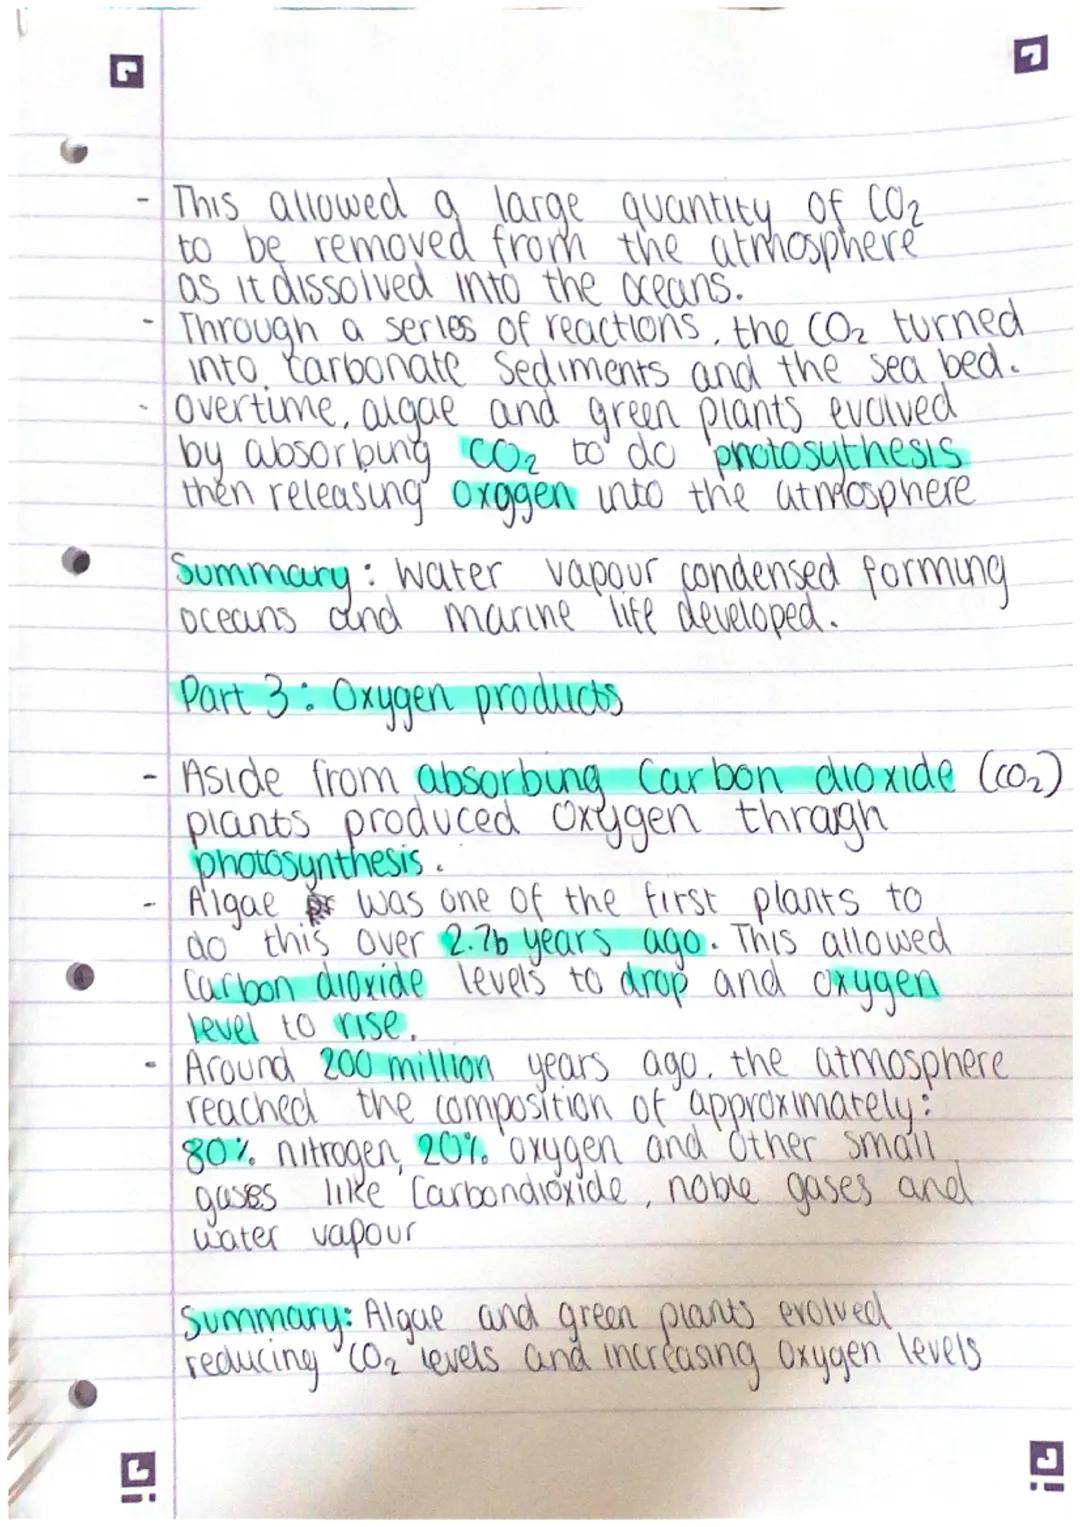 - This allowed a large quantity of CO2
to be removed from the atmosphere
as it dissolved into the oceans.
- Through a series of reactions, the CO2 turned
into carbonate sediments and the sea bed.
- overtime, algae and green plants evolved
by absorbung CO2 to do photosythesis
then releasing oxggen into the atmosphere
Summary: Water vapour condensed forming
oceans and marine life developed.
Part 3: Oxygen products
- Aside from absorbung Carbon dioxide (CO2)
plants produced oxygen through
photosynthesis.
- Algae was one of the first plants to
do this over 2.7b years ago. This allowed
Carbon dioxide levels to drop and oxygen
level to rise.
- Around 200 million years ago, the atmosphere
reached the composition of approximately:
80% nitrogen, 20% oxygen and other small
gases like Carbondioxide, noble gases and
water vapour
Summary: Algae and green plants evolved
reducing CO2 levels and increasing oxygen levels